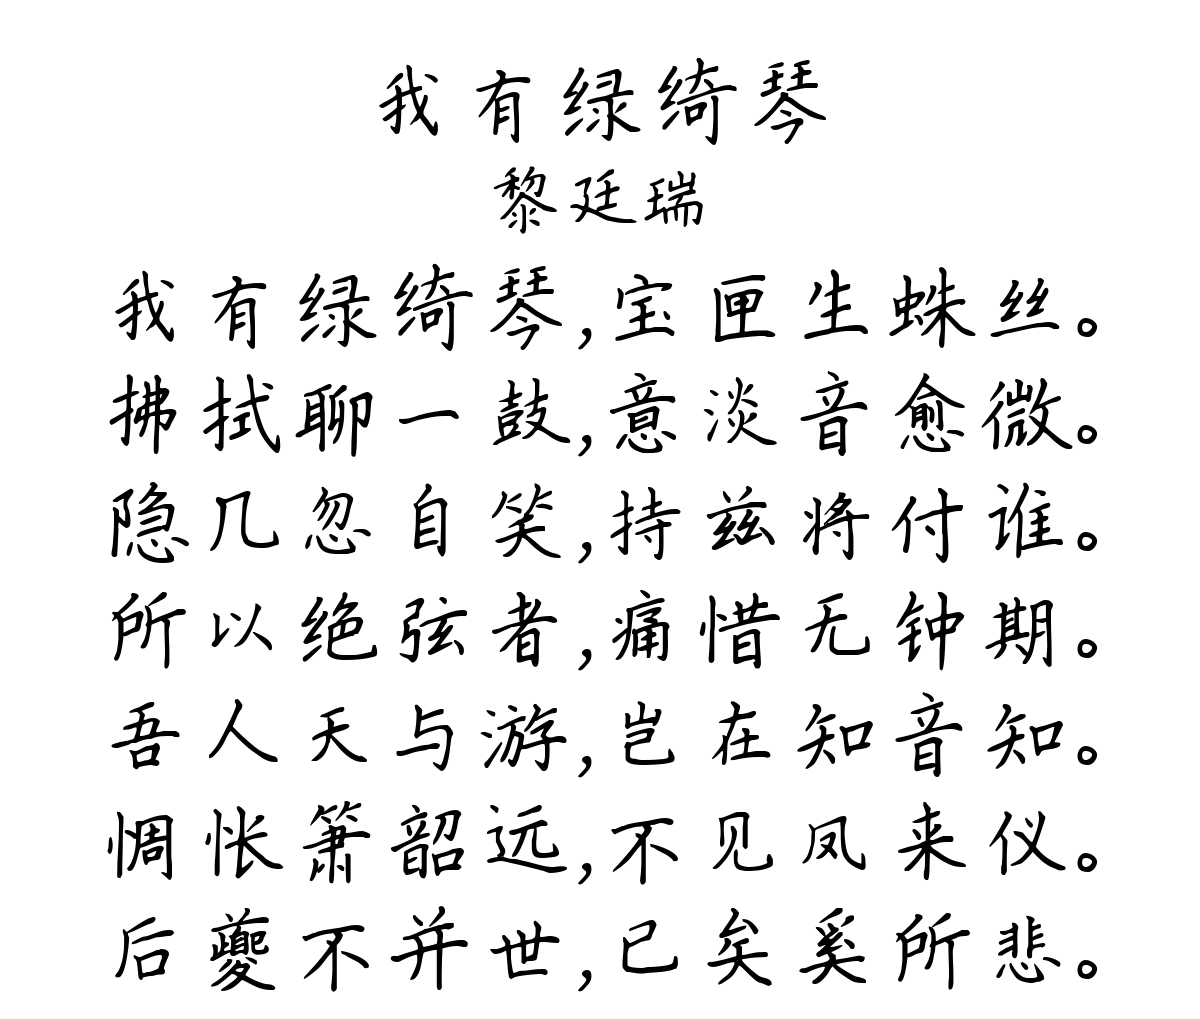 我有绿绮琴
黎廷瑞
我有绿绮琴,宝匣生蛛丝。
拂拭聊一鼓,意淡音愈微。
隐几忽自笑,持兹将付谁。
所以绝弦者,痛惜无钟期。
吾人天与游,岂在知音知。
惆怅箫韶远,不见凤来仪。
后夔不并世,已矣奚所悲。